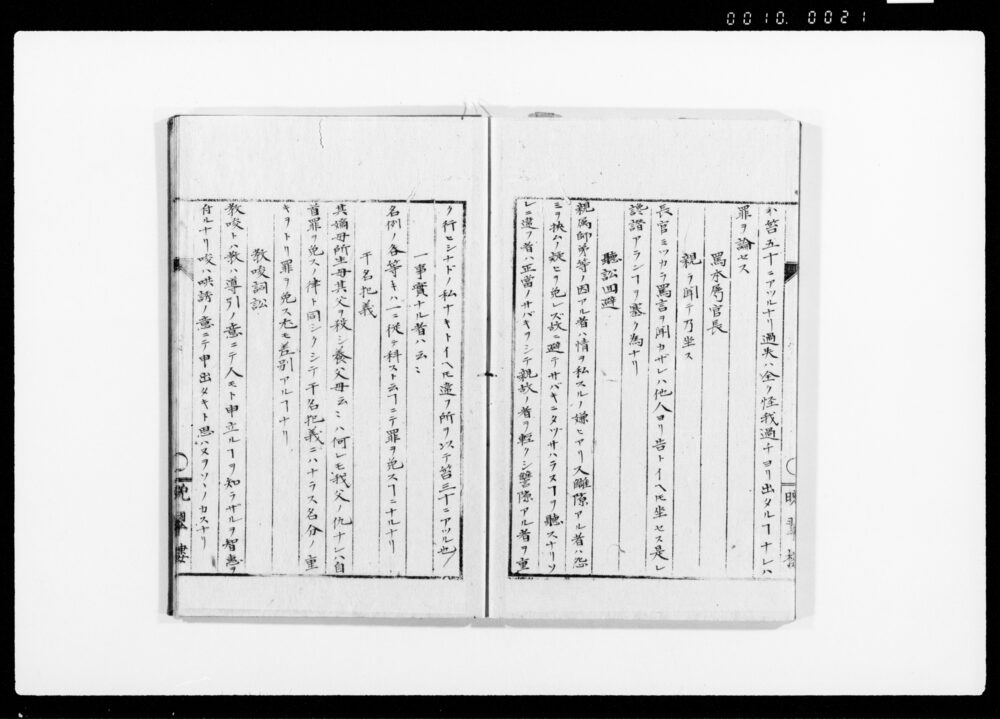 0010. 0021
ハ笞五十ニアツルナリ過失ハ全ク怪我過チヨリ出タルヿナレハ
罪ヲ論セス
罵本属官長
親ラ聞テ乃坐ス
長官ミツカラ罵言ヲ聞カザレハ他人ヨリ告トイヘ𪜈坐セス是レ
讒譖アランヿヲ塞ク為ナリ
聽訟回避
親属師弟等ノ因アル者ハ情ヲ私スルノ嫌ヒアリ又雠隙アル者ハ怨
ミヲ挾ムノ疑ヒヲ免レズ故ニ避テサバキニタヅサハラスヿヲ聽スナリソ
レニ違フ者ハ正當ノサバキヲシテ親故ノ者ヲ輕クシ讐隙アル者ヲ重
ク行セシナドノ私ナキトイヘ𪜈違フ所ヲ以テ笞三十ニアツル也
一事實ナル者ハ云〻
名例ノ各等キハ一ニ從テ科スト云フニテ罪ヲ免スヿニナルナリ
干名犯義
其嫡母所生母其父ヲ殺シ養父母云〻ハ何レモ我父ノ仇ナレハ自
首罪ヲ免スノ律ト同シクシテ干名犯義ニハナラス名分ノ重
キヲトリ罪ヲ免ス尤モ差別アルヿナリ
教唆詞訟
教唆トハ教ハ導引ノ意ニテ人モト申立ルヿヲ知ラザルヲ智恵ヲ
付ルナリ唆ハ哄誘ノ意ニテ申出タキト思ハヌヲソヽノカスナリ
晩翠楼